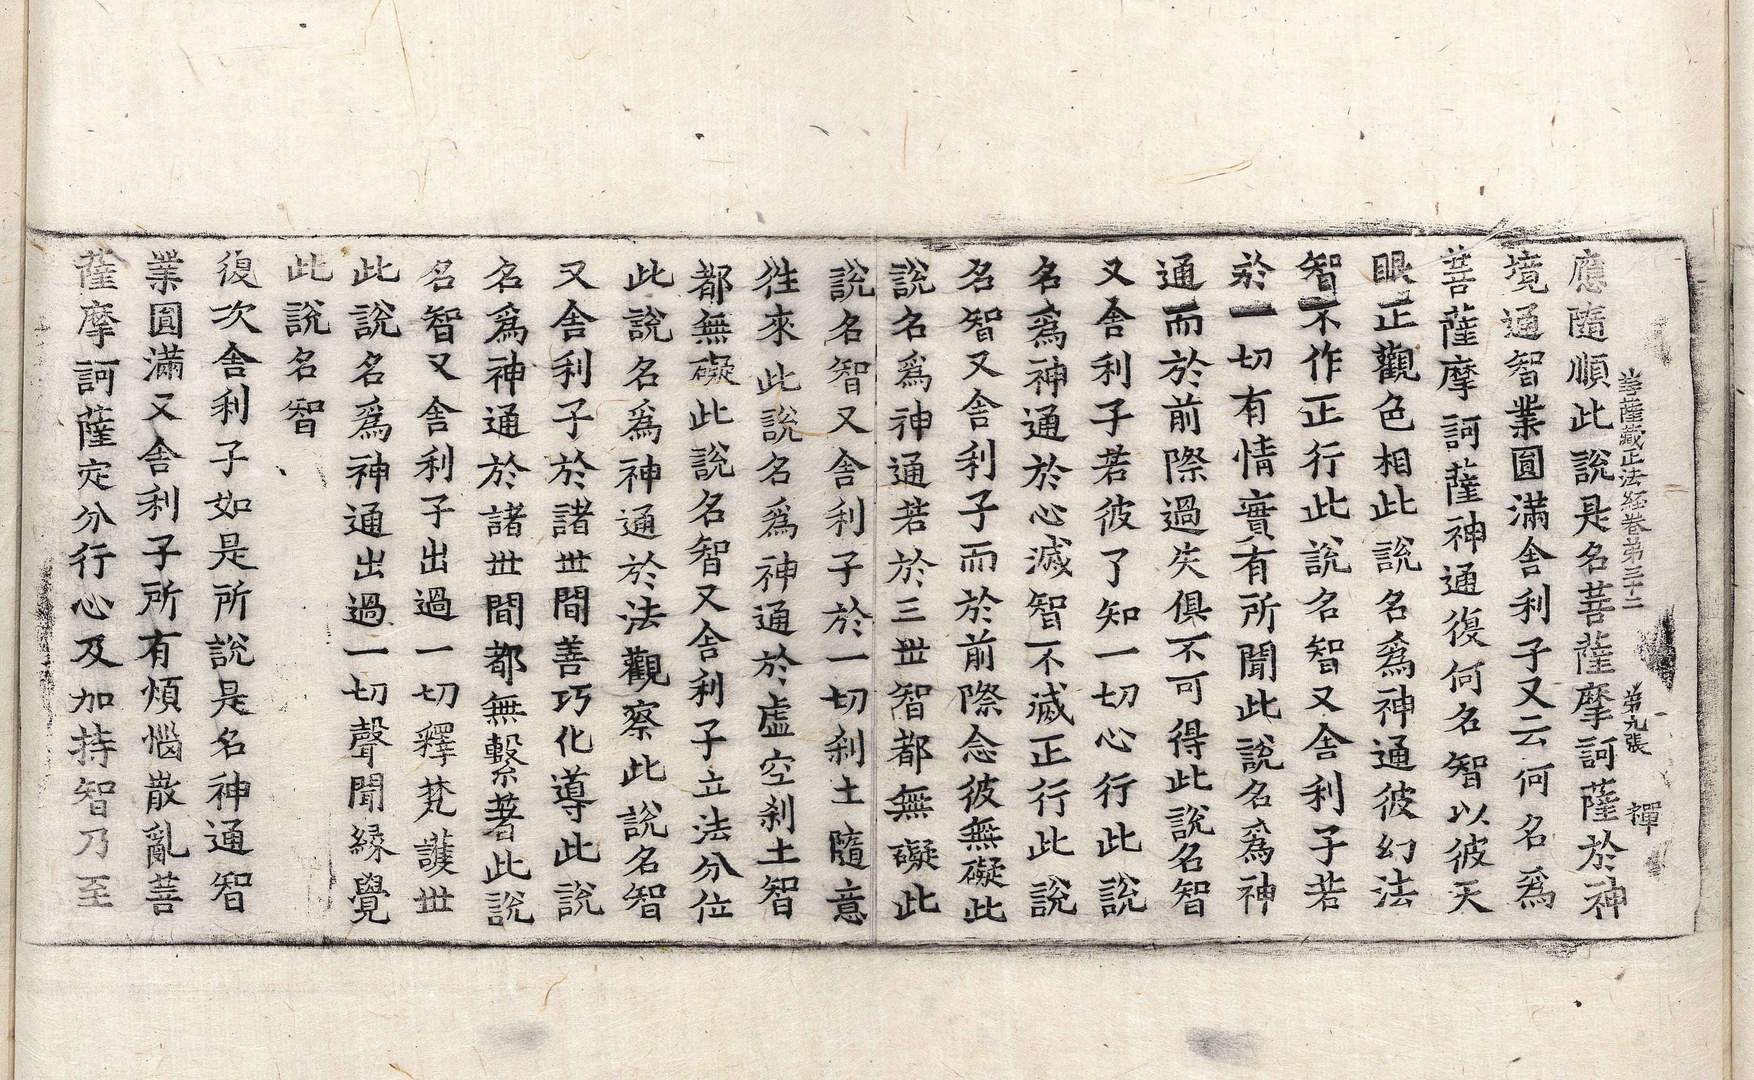 菩薩藏正法經卷第三十二 第九張 禪
應隨順此說是名菩薩摩訶薩於神
境通智業圓滿舍利子又云何名爲
菩薩摩訶薩神通復何名智以彼天
眼正觀色相此說名爲神通彼幻法
智不作正行此說名智又舍利子若
於一切有情實有所聞此說名爲神
通而於前際過失俱不可得此說名智
又舍利子若彼了知一切心行此說
名爲神通於心滅智不滅正行此說
名智又舍利子而於前際念彼無礙此
說名爲神通若於三世智都無礙此
說名智又舍利子於一切刹土隨意
往來此說名爲神通於虛空刹土智
都無礙此說名智又舍利子立法分位
此說名爲神通於法觀察此說名智
又舍利子於諸世間善巧化導此說
名爲神通於諸世間都無繫著此說
名智又舍利子出過一切釋梵護世
此說名爲神通出過一切聲聞緣覺
此說名智
復次舍利子如是所說是名神通智
業圓滿又舍利子所有煩惱散亂菩
薩摩訶薩定分行心及加持智乃至